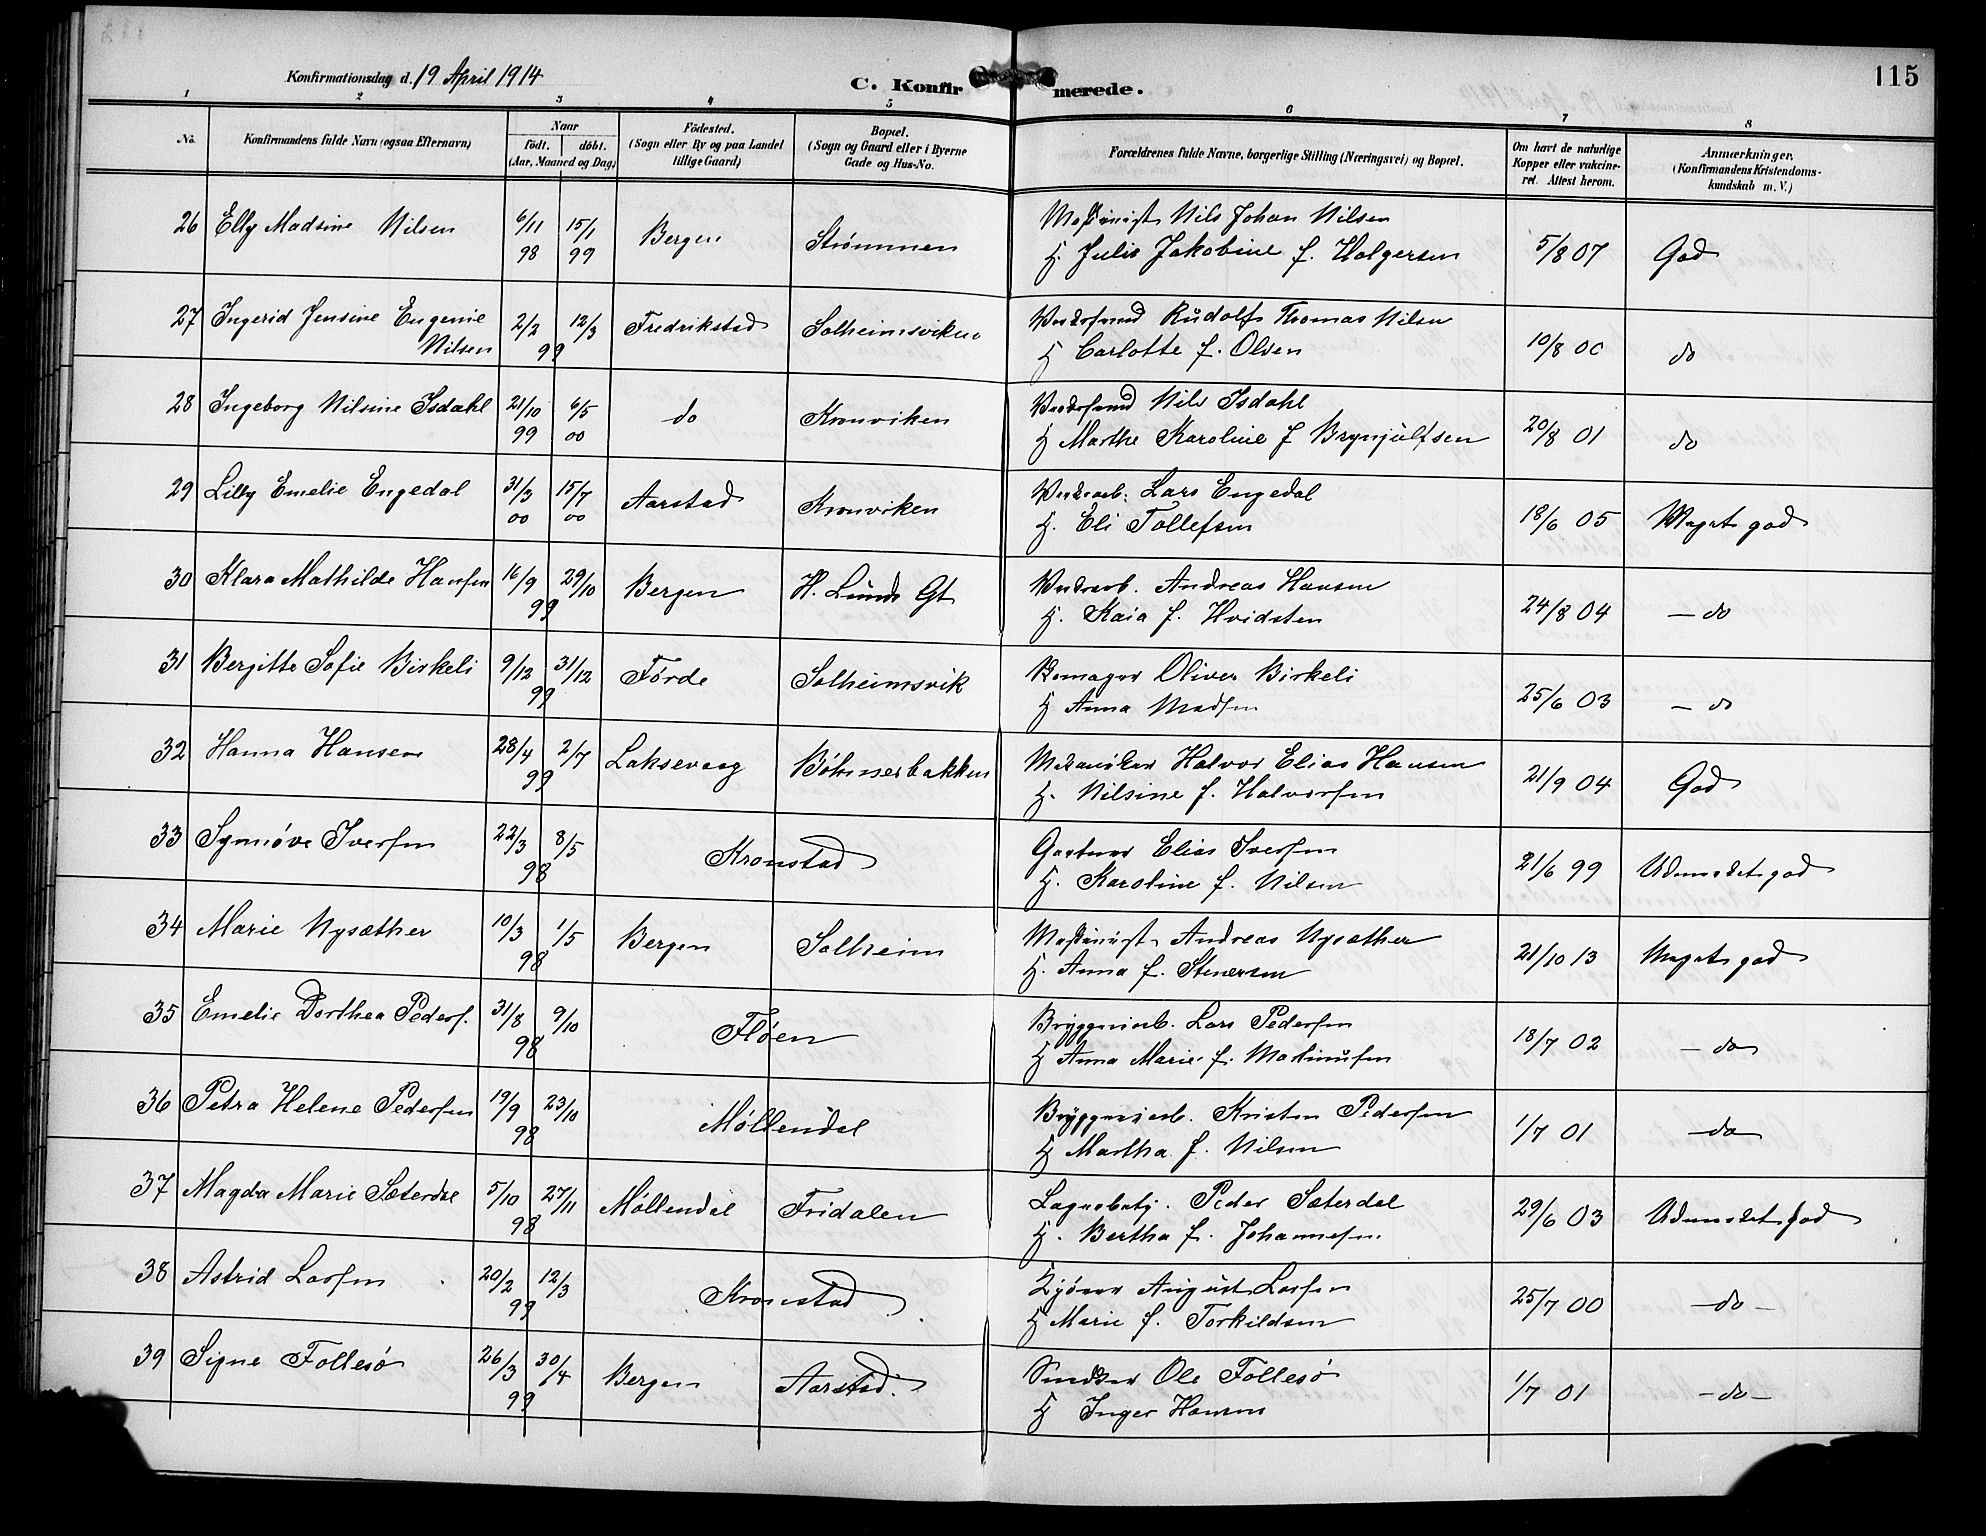 115
Konfirmationsdag d. 19 April 1914
C. Konfirmerede.
1 2 3 4 5 6 7 8
No. Konfirmandens fulde Navn (ogsaa Efternavn) Naar födt. döbt. (Aar, Maaned og Dag) Födested. (Sogn eller By og paa Landet tillige Gaard) Bopæl. (Sogn og Gaard eller i Byerne Gade og Hus-No. Forældrenes fulde Navne, borgerlige Stilling (Næringsvei) og Bopæl. Om havt de naturlige Kopper eller vakcineret. Attest herom. Anmærkninger. (Konfirmandens Kristendomskundskab m. V.)
26 Elly Madsine Nilsen 6/11 98 15/1 99 Bergen Strømmen Maskinist Nils Johan Nilsen
H. Julie Jakobine f. Holgersen 5/8 07 God
27 Ingerid Jensine Eugenie Nilsen 2/2 12/3 99 Fredrikstad Solheimsviken Rudolf Thomas Nilsen
H Carlotte f. Olsen 10/8 00 do
28 Ingeborg Nilsine Isdahl 21/10 99 6/5 00 do Kronviken Nils Isdahl
H Marthe Karoline f Brynjulfsen 20/8 01 do
29 Lilly Emelie Engedal 31/3 00 15/7 00 Aarstad Kronviken Verksarb. Lars Engedal
H. Eli Tollefsen 18/6 05 Meget god
30 Klara Mathilde Hansen 16/9 29/10 99 Bergen H. Lunds Gt Verksarb. Andreas Hansen
H. Kaia f. Hvidsten 24/8 04 — do
31 Bergitte Sofie Birkeli 9/12 31/12 99 Førde Solheimsvik Skomager Oliver Birkeli
H Anna Madsen 25/6 03 — do
32 Hanna Hansen 28/4 2/7 99 Laksevaag Bøhmerbakken Mekaniker Halvor Elias Hansen
H. Nilsine f. Halvorsen 21/9 04 God
33 Synnøve Iversen 22/3 8/5 98 Kronstad Gartner Elias Iversen
H. Karoline f. Nilsen 21/6 99 Udmerket god
34 Marie Nysæther 10/3 1/5 98 Bergen Solheim Maskinist Andreas Nysæther
H. Anna f. Stenersen 21/10 13 Meget god
35 Emelie Dorthea Peders. 31/8 9/10 98 Fløen Bryggeriarb. Lars Pedersen
H Anna Marie f. Martinusen 18/7 02 — do
36 Petra Helene Pedersen 19/9 23/10 98 Møllendal Bryggeriarb. Kristen Pedersen
H Martha f. Nilsen 1/7 01 — do
37 Magda Marie Sæterdal 5/10 27/11 98 Møllendal Fridalen Lagerbetj. Peder Sæterdal
H. Bertha f. Johannesen 29/6 03 Udmerket god
38 Astrid Larsen 20/2 12/3 99 Kronstad Kjører August Larsen
H Marie f. Torkildsen 25/7 00 — do —
39 Signe Follesø 26/3 30/4 99 Bergen Aarstad. Snedker Ole Follesø
H Inger Hansen 1/7 01 — do —